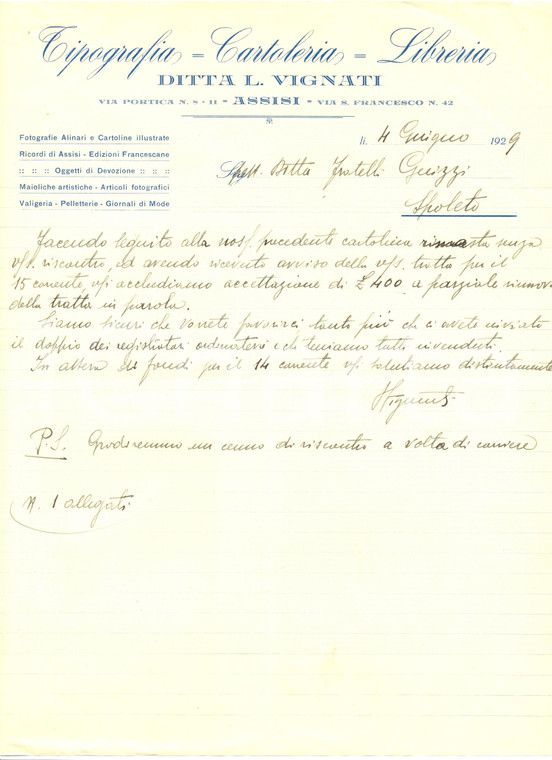 Tipografia = Cartoleria = Libreria
DITTA L. VIGNATI
VIA PORTICA N. 8 - 11 * ASSISI * VIA S. FRANCESCO N. 42
Fotografie Alinari e Cartoline illustrate
Ricordi di Assisi - Edizioni Francescane
:: :: :: Oggetti di Devozione :: :: ::
Maioliche artistiche - Articoli fotografici
Valigeria - Pelletterie - Giornali di Mode
li, 4 Guigno 1929
Spett. Ditta Fratelli Guizzi
Spoleto
Facendo seguito alla nos/. precedente cartolina rimasta senza
v/s. riscontro, ed avendo ricevuto avviso della v/s. tratta per il
15 corrente, v/i accludiamo accettazione di £ 400 a parziale rinnovo
della tratta in parola.
Siamo sicuri che vorrete favorirci tanto più che ci avete inviato
il doppio dei registratori ordinativi e che teniamo tutti invenduti.
In attesa dei fondi per il 14 corrente v/i salutiamo distintamente
P.S. Gradiremmo un cenno di riscontro a volta di corriere
N. 1 allegati